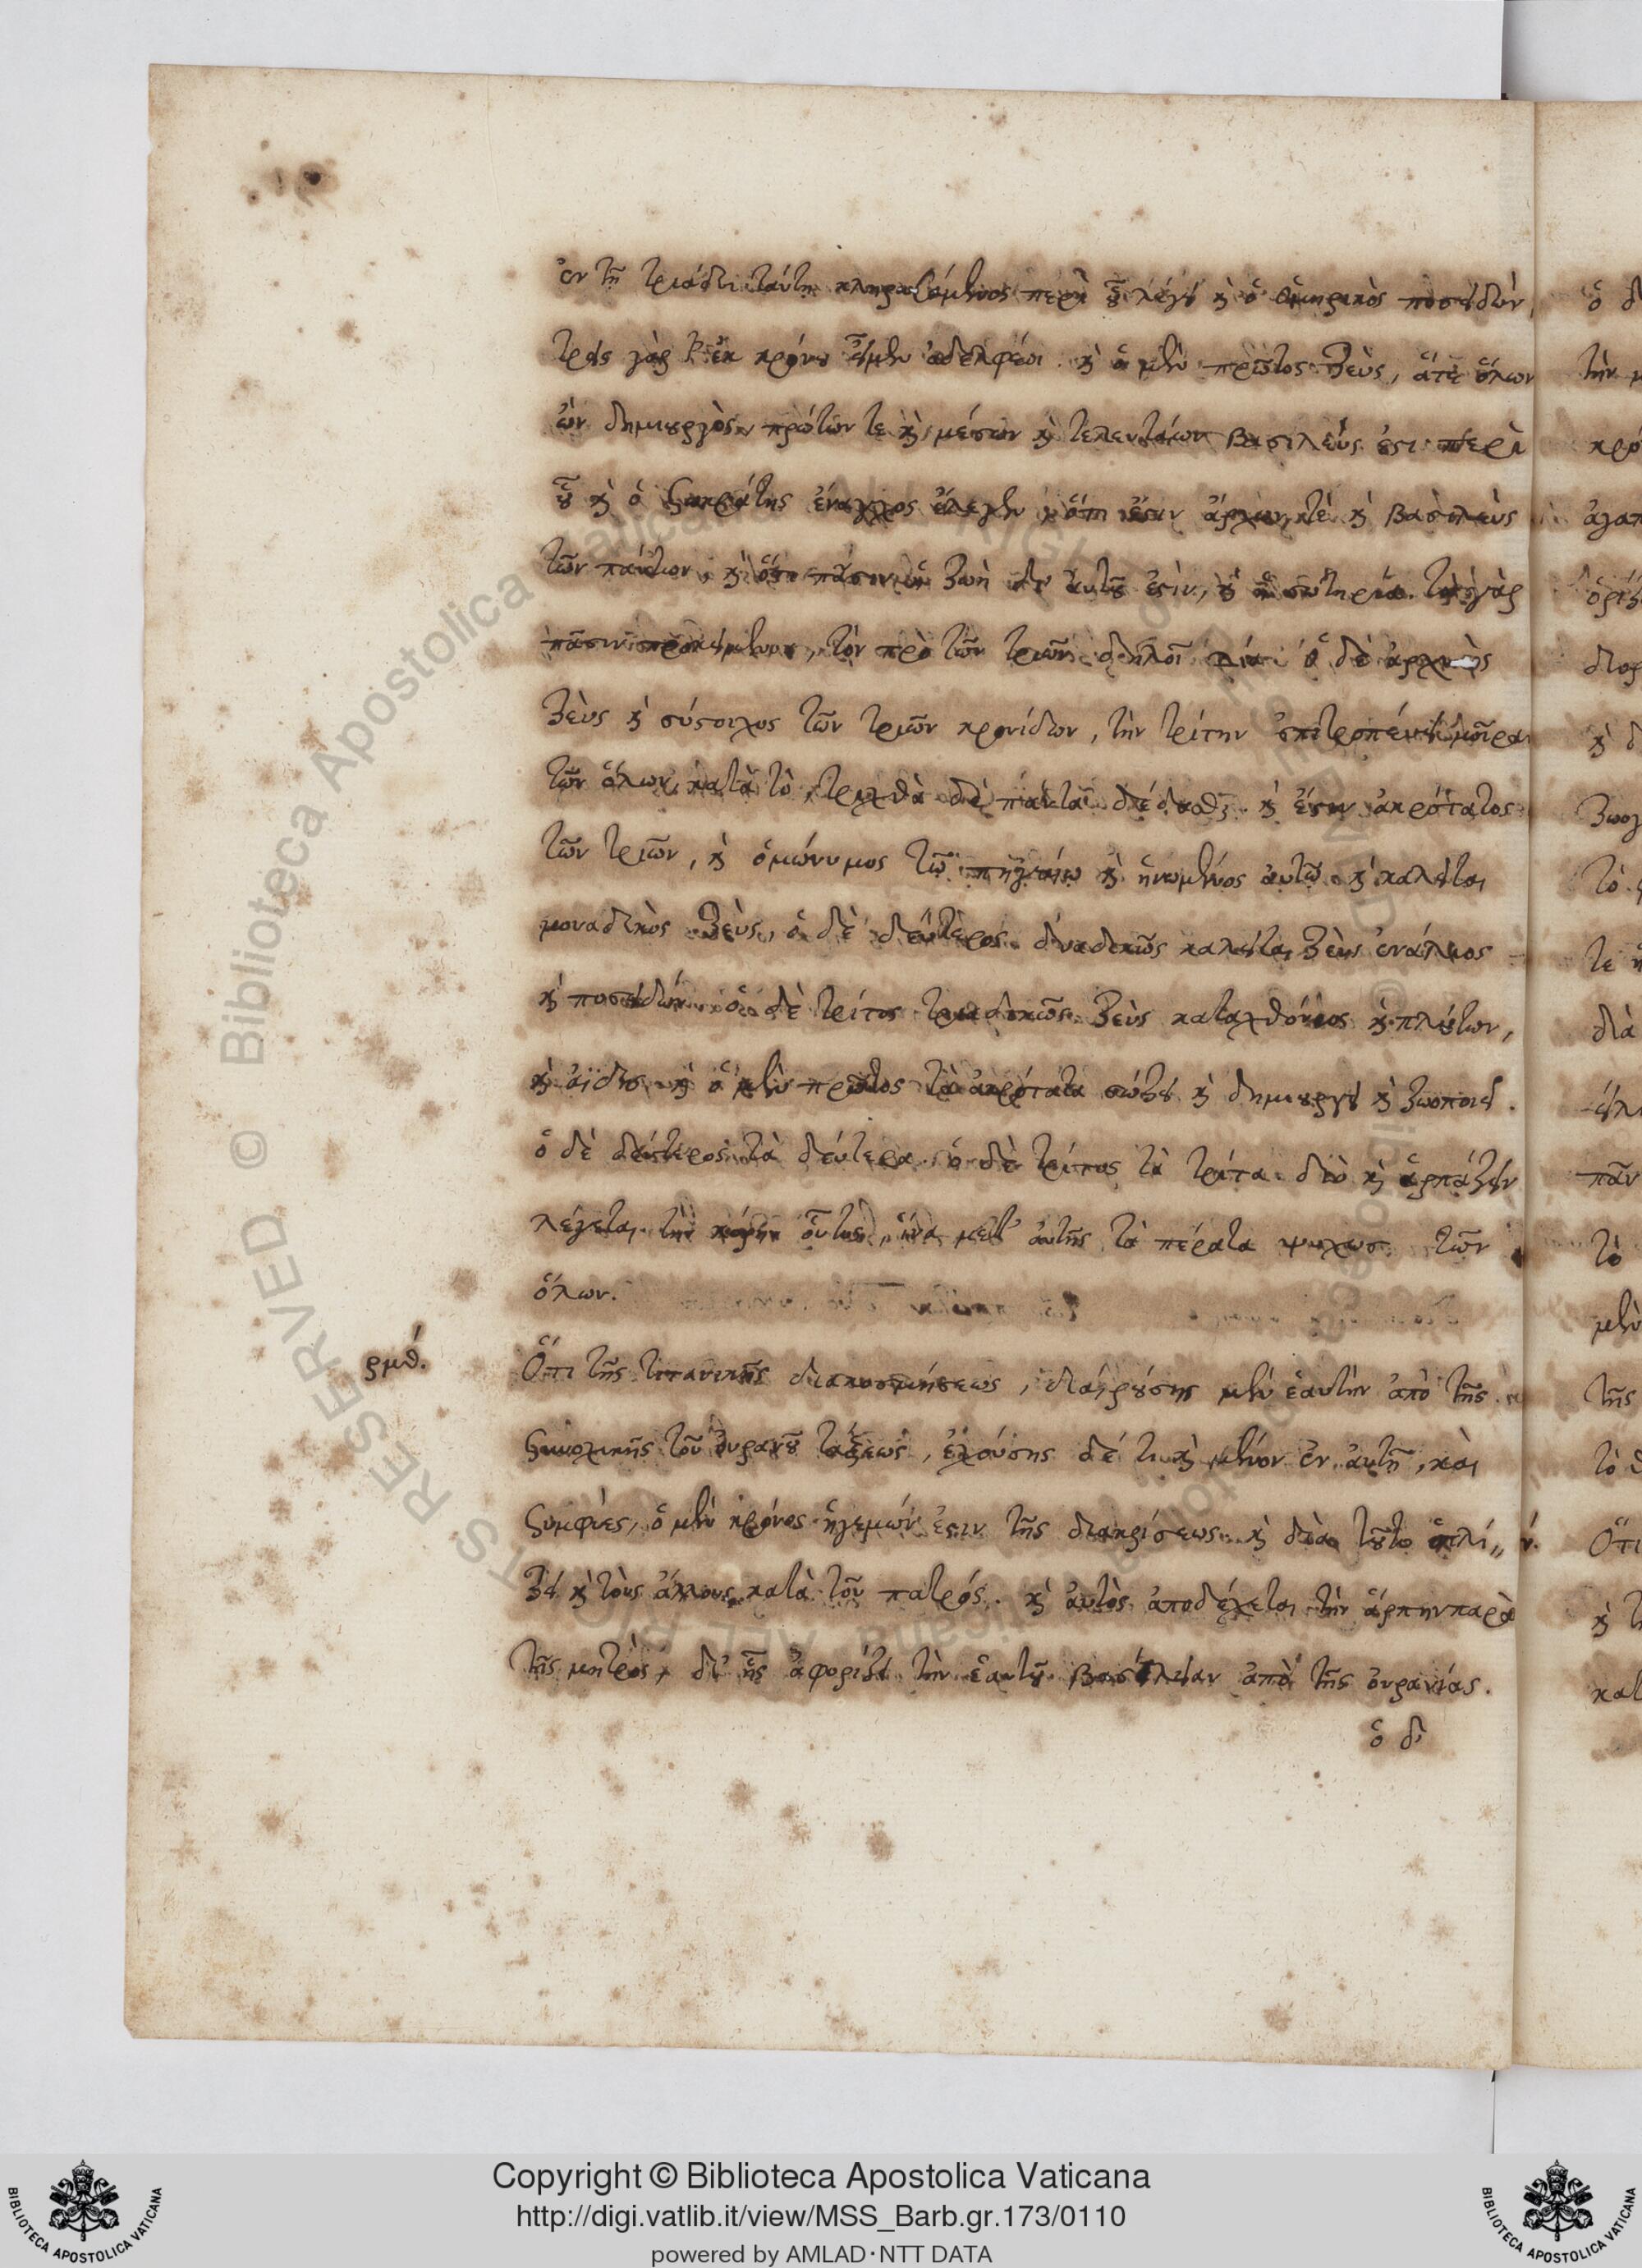 ἐν τῇ τριάδι ταύτῃ κληρουμένος περὶ οὗ λέγει καὶ ὁ ὁμηρικὸς ποσειδῶν,
τρεῖς γὰρ ἐκ κρόνου εἰμὲν ἀδελφεοί. καὶ ὁ μὲν πρῶτος Ζεὺς, ἅτε ὅλων
ὢν δημιουργὸς πρώτων τε καὶ μέσων καὶ τελευταίων βασιλεύς ἐστι περὶ
οὗ καὶ ὁ Σωκράτης ἔναγχος ἔλεγεν ὅτι ἔστιν ἄρχων τὲ καὶ βασιλεὺς
τῶν πάντων, καὶ ὅτι πᾶσιν ἡ ζωὴ δι' αὐτοῦ ἐστὶν, καὶ ἡ σωτηρία. τὸ γὰρ
πᾶσιν προκείμενον, τὸν πρὸ τῶν τριῶν δηλοῖ δία· ὁ δὲ ἀρχικὸς
Ζεὺς καὶ σύστοιχος τῶν τριῶν κρονίδων, τὴν τρίτην ἐπιτροπεύει μοῖραν
τῶν ὅλων κατὰ τὸ, τριχθὰ δὲ πάντα δέδασται. καὶ ἔστιν ἀκρότατος
τῶν τριῶν, καὶ ὁμώνυμος τῷ πηγαίῳ καὶ ἡνωμένος αὐτῷ. καὶ καλεῖται
μοναδικὸς Ζεὺς, ὁ δὲ δεύτερος δυαδικῶς καλεῖται Ζεὺς ἐνάλιος
καὶ ποσειδῶν· ὁ δὲ τρίτος τριαδικῶς Ζεὺς καταχθόνιος καὶ πλούτων,
καὶ ἀΐδης. καὶ ὁ μὲν πρῶτος τὰ ἀκρότατα σώζει καὶ δημιουργεῖ καὶ ζωοποιεῖ.
ὁ δὲ δεύτερος τὰ δεύτερα. ὁ δὲ τρίτος τὰ τρίτα. διὸ καὶ ἁρπάζειν
λέγεται τὴν κόρην οὗτος, ἵνα μετ' αὐτῆς τὰ πέρατα ψυχώσῃ τῶν
ὅλων.
ρμθ. Ὅτι τῆς τιτανικῆς διακοσμήσεως, διαιρούσης μὲν ἑαυτὴν ἀπὸ τῆς
συνοχικῆς τοῦ οὐρανοῦ τάξεως, ἐχούσης δέ τι καὶ μένον ἐν αὐτῇ, καὶ
συμφυὲς, ὁ μὲν κρόνος ἡγεμών ἐστιν τῆς διακρίσεως. καὶ διὰ τοῦτο ὁπλί„
ζει καὶ τοὺς ἄλλους κατὰ τοῦ πατρός. καὶ αὐτὸς ἀποδέχεται τὴν ἅρπην παρὰ
τῆς μητρὸς, δι' ἧς ἀφορίζει τὴν ἑαυτοῦ βασιλείαν ἀπὸ τῆς οὐρανίας.
ὁ δὲ
Copyright © Biblioteca Apostolica Vaticana
http://digi.vatlib.it/view/MSS_Barb.gr.173/0110
powered by AMLAD·NTT DATA